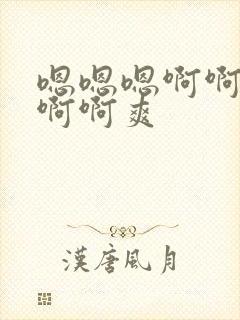 嗯嗯嗯啊啊
啊啊爽
漢唐風月